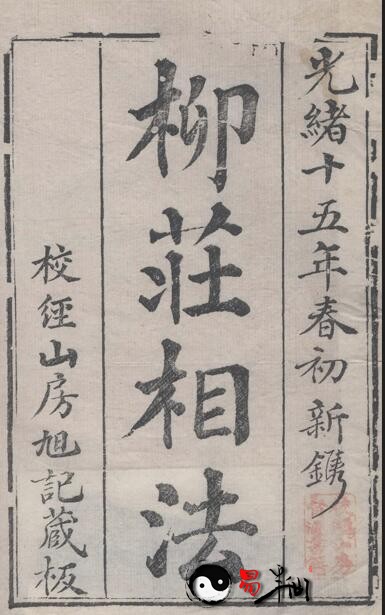 光緒十五年春初新鐫
柳莊相法
校經山房旭記藏板
易